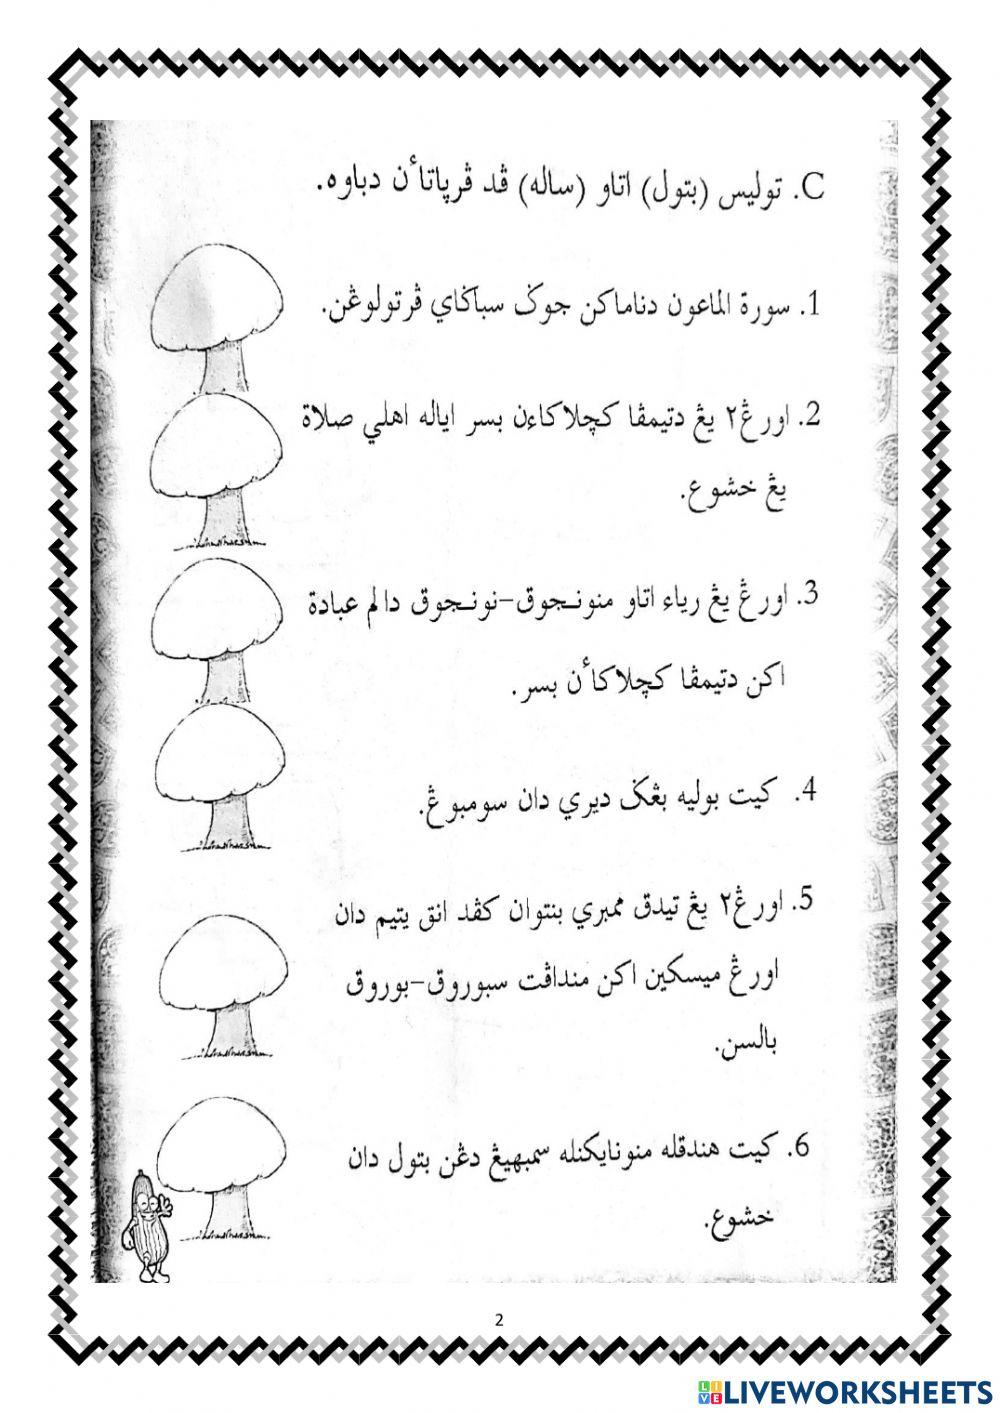 C. توليس (بتول) اتاو (ساله) ڤد ڤرياتاٴن دباوه.
1. سورة الماعون دناماكن جوݢ سباݢاي ڤرتولوڠن.
2. اورڠ٢ يڠ دتيمڤا كچلاكاءن بسر اياله اهلي صلاة
يڠ خشوع.
3. اورڠ يڠ رياء اتاو منونجوق-نونجوق دالم عبادة
اكن دتيمڤا كچلاكاٴن بسر.
4. كيت بوليه بڠݢ ديري دان سومبوڠ.
5. اورڠ٢ يڠ تيدق ممبري بنتوان كڤد انق يتيم دان
اورڠ ميسكين اكن منداڤت سبوروق-بوروق
بالسن.
6. كيت هندقله منونايكنله سمبهيڠ دڠن بتول دان
خشوع.
2
LIVEWORKSHEETS